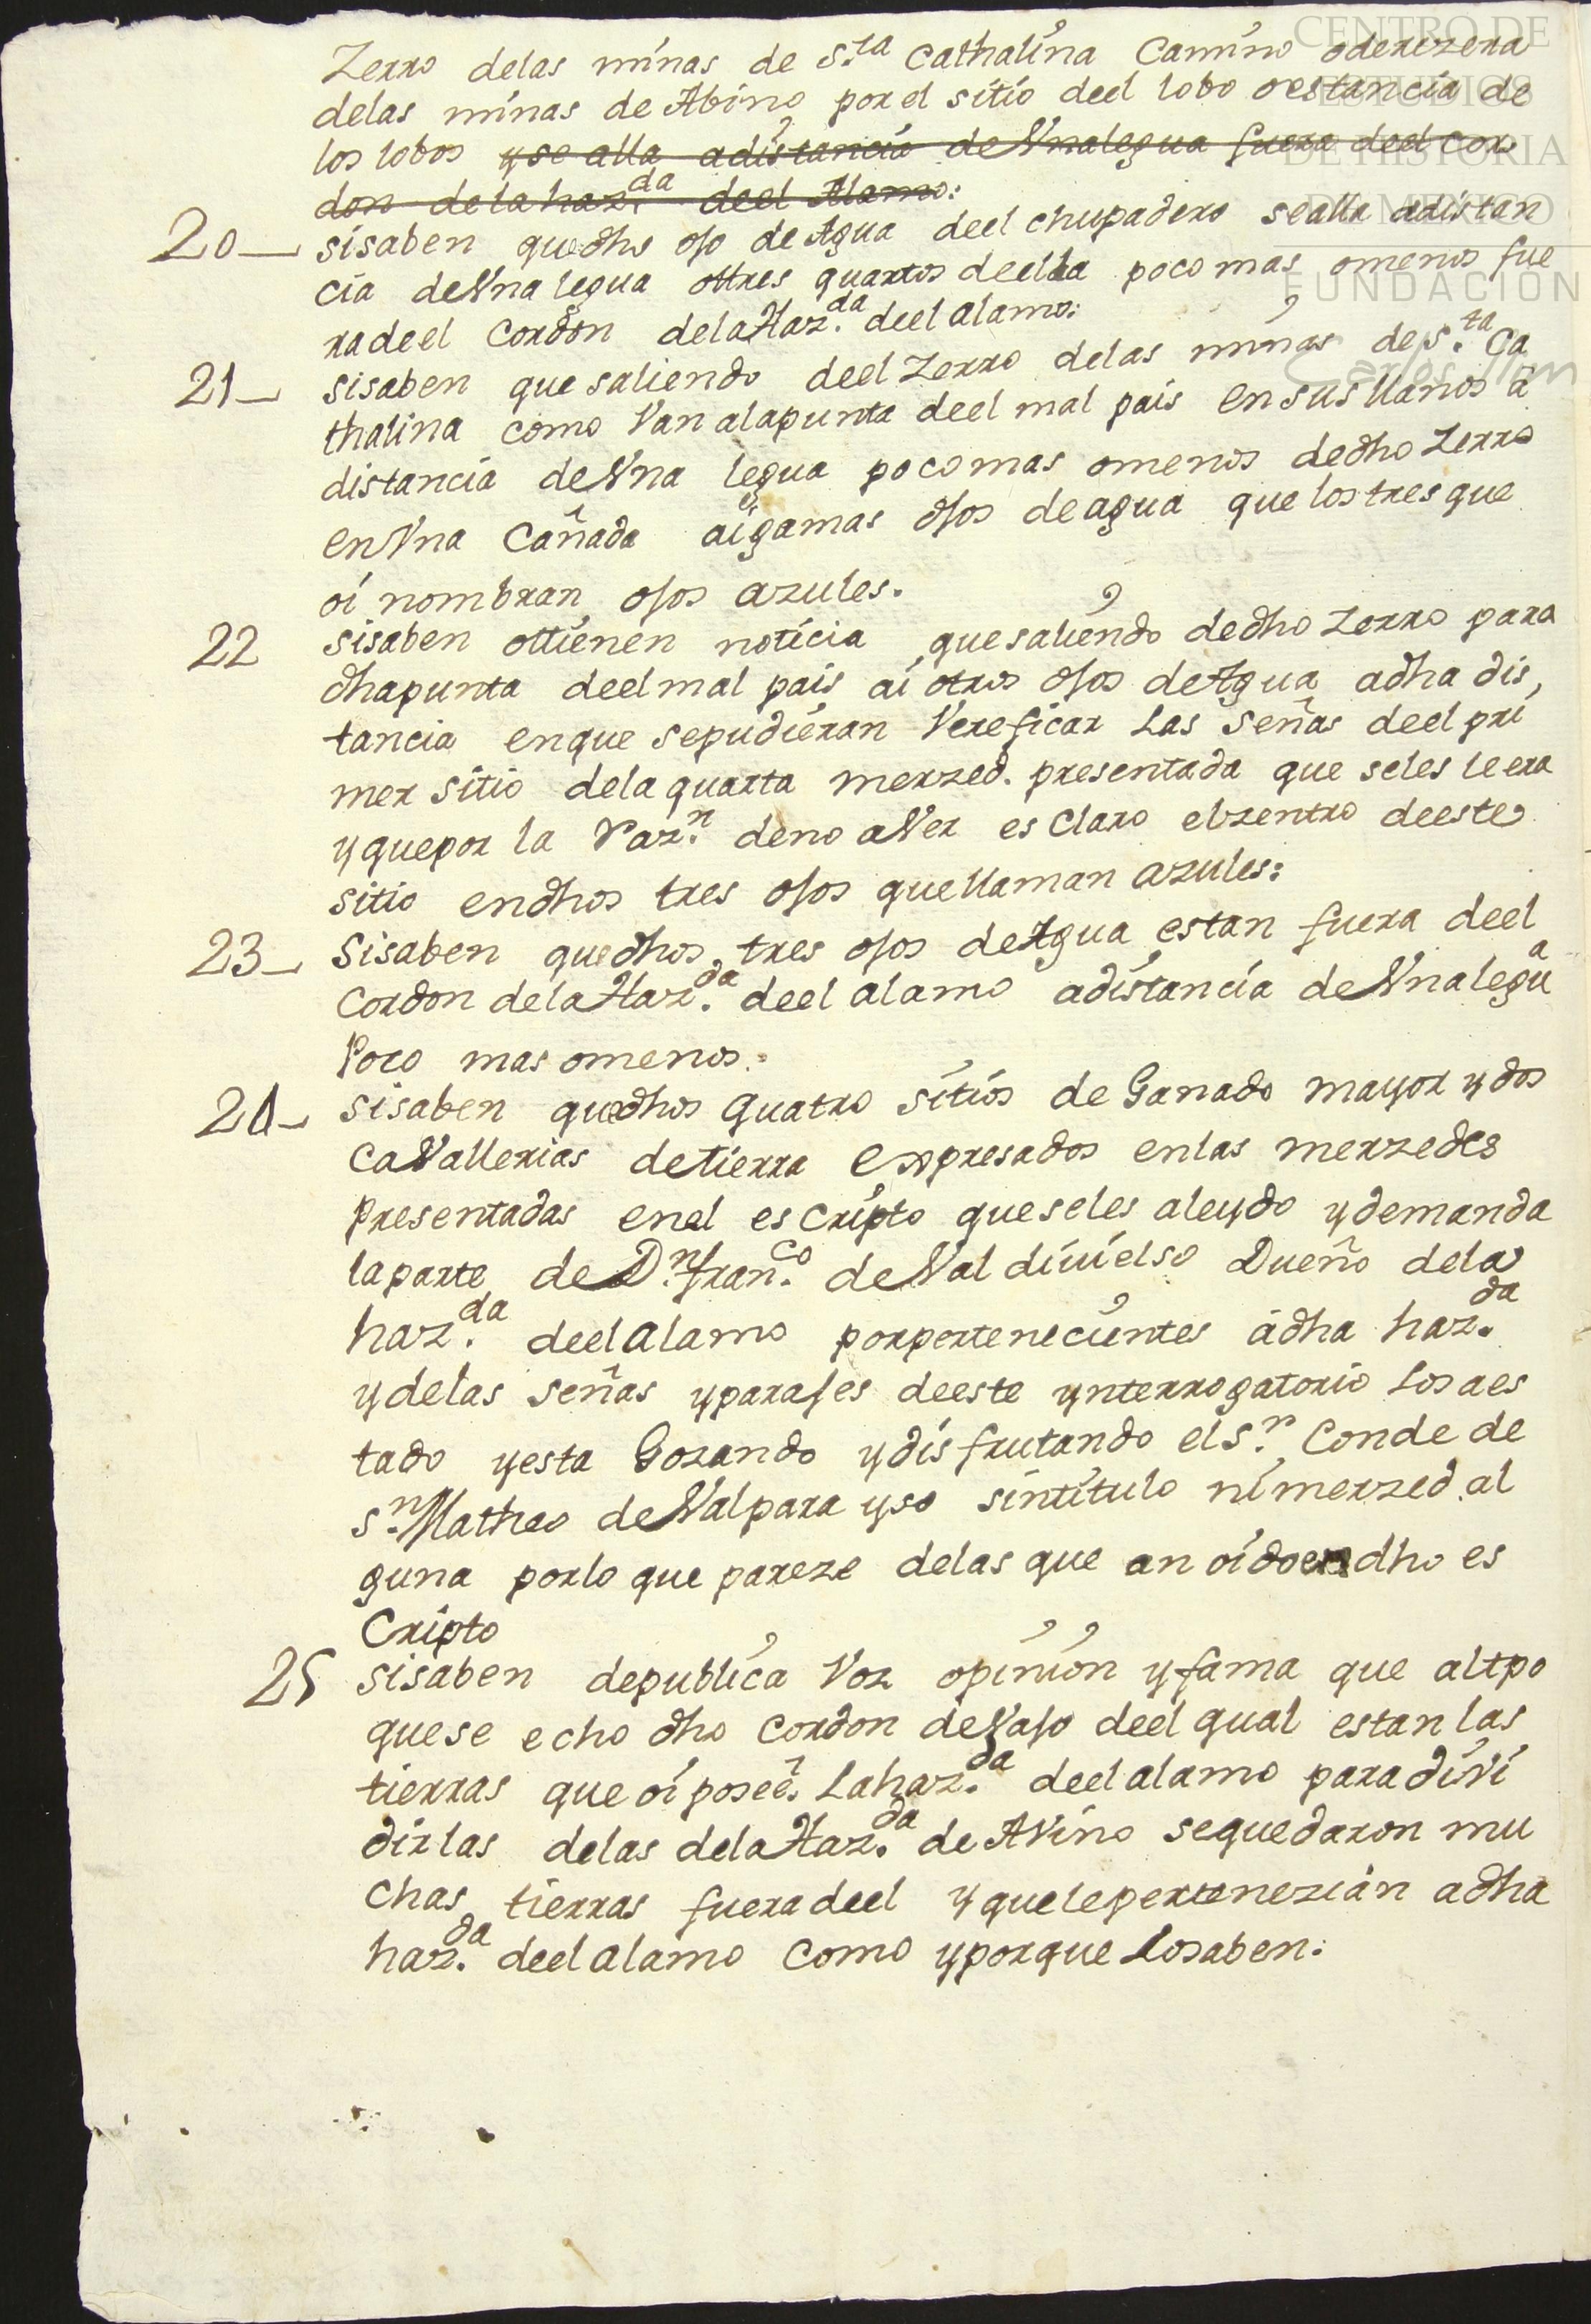 Zerro delas minas de S.ta Cathalina Camino oderezera
delas minas de Abino por el sitio deel lobo o estancia de
los lobos y se alla a distancia de Vna legua fuera deel cor
don de la haz.da deel Alamo:
20— si saben que dho ojo de Agua deel chupadero se alla a distan
cia de Vna legua o tres quartos de ella poco mas o menos fue
ra de el Cordon dela Haz.da deel alamo:
21— si saben que saliendo deel Zerro delas minas de S.ta Ca
thalina como Van ala punta deel mal pais en sus llanos â
distancia de Vna legua poco mas o menos de dho Zerro
en Vna Cañada aiga mas ojos de agua que los tres que
oi nombran ojos azules.
22 si saben o tienen noticia que saliendo de dho Zerro para
dha punta deel mal pais ai otros ojos de Agua a dha dis,
tancia en que se pudieran Vereficar Las Señas deel pri
mer sitio dela quarta merzed. presentada que se les leera
y que por la Raz.n de no aVer es Claro el zentro de este
sitio en dhos tres ojos que llaman azules:
23— Si saben que dhos tres ojos de Agua estan fuera deel
Cordon dela Haz.da deel alamo a distancia de Vna legua
Poco mas o menos.
24— si saben que dhos quatro sitios de Ganado mayor y dos
CaVallerias de tierra expresados en las merzedes
Presentadas en el escripto que se les a leydo y demanda
la parte de D.n fran.co de Valdiuielso Dueño dela
haz.da deel alamo por pertenecientes â dha haz.da
y de las señas y parajes de este ynterrogatorio Los a es
tado y esta Gozando y disfrutando el S.r Conde de
S.n Matheo de Valparayso sin titulo ni merzed al
guna por lo que pareze delas que an oido en dho es
Cripto
25 si saben de publica Voz opinion y fama que al tpo
que se echo dho Cordon de Vajo deel qual estan las
tierras que oi poseê. La haz.da deel alamo para diVi
dirlas delas dela Haz.da de AVino se quedaron mu
chas tierras fuera deel y que le pertenezian a dha
haz.da deel alamo Como y por que Lo saben:
CENTRO DE
ESTUDIOS
DE HISTORIA
DE MÉXICO
FUNDACIÓN
Carlos Slim